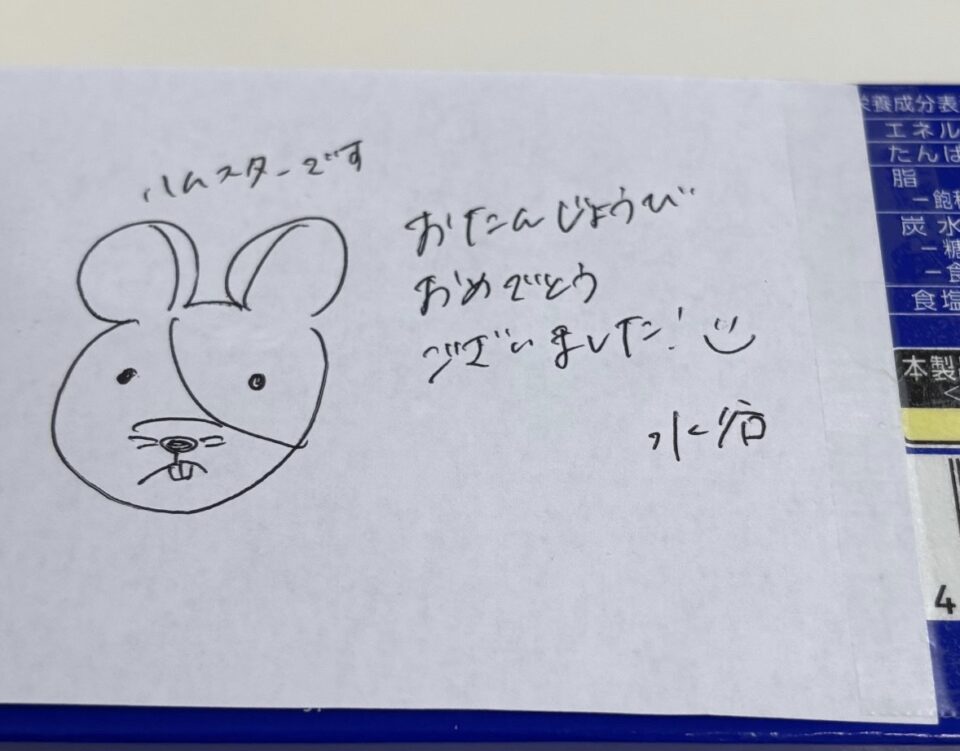 ハムスターです
おたんじょうび
おめでとう
ございました!
水谷
栄養成分表
エネル
たんぱ
脂
-飽和
炭水
-糖
-食
食塩
本製品
<
4